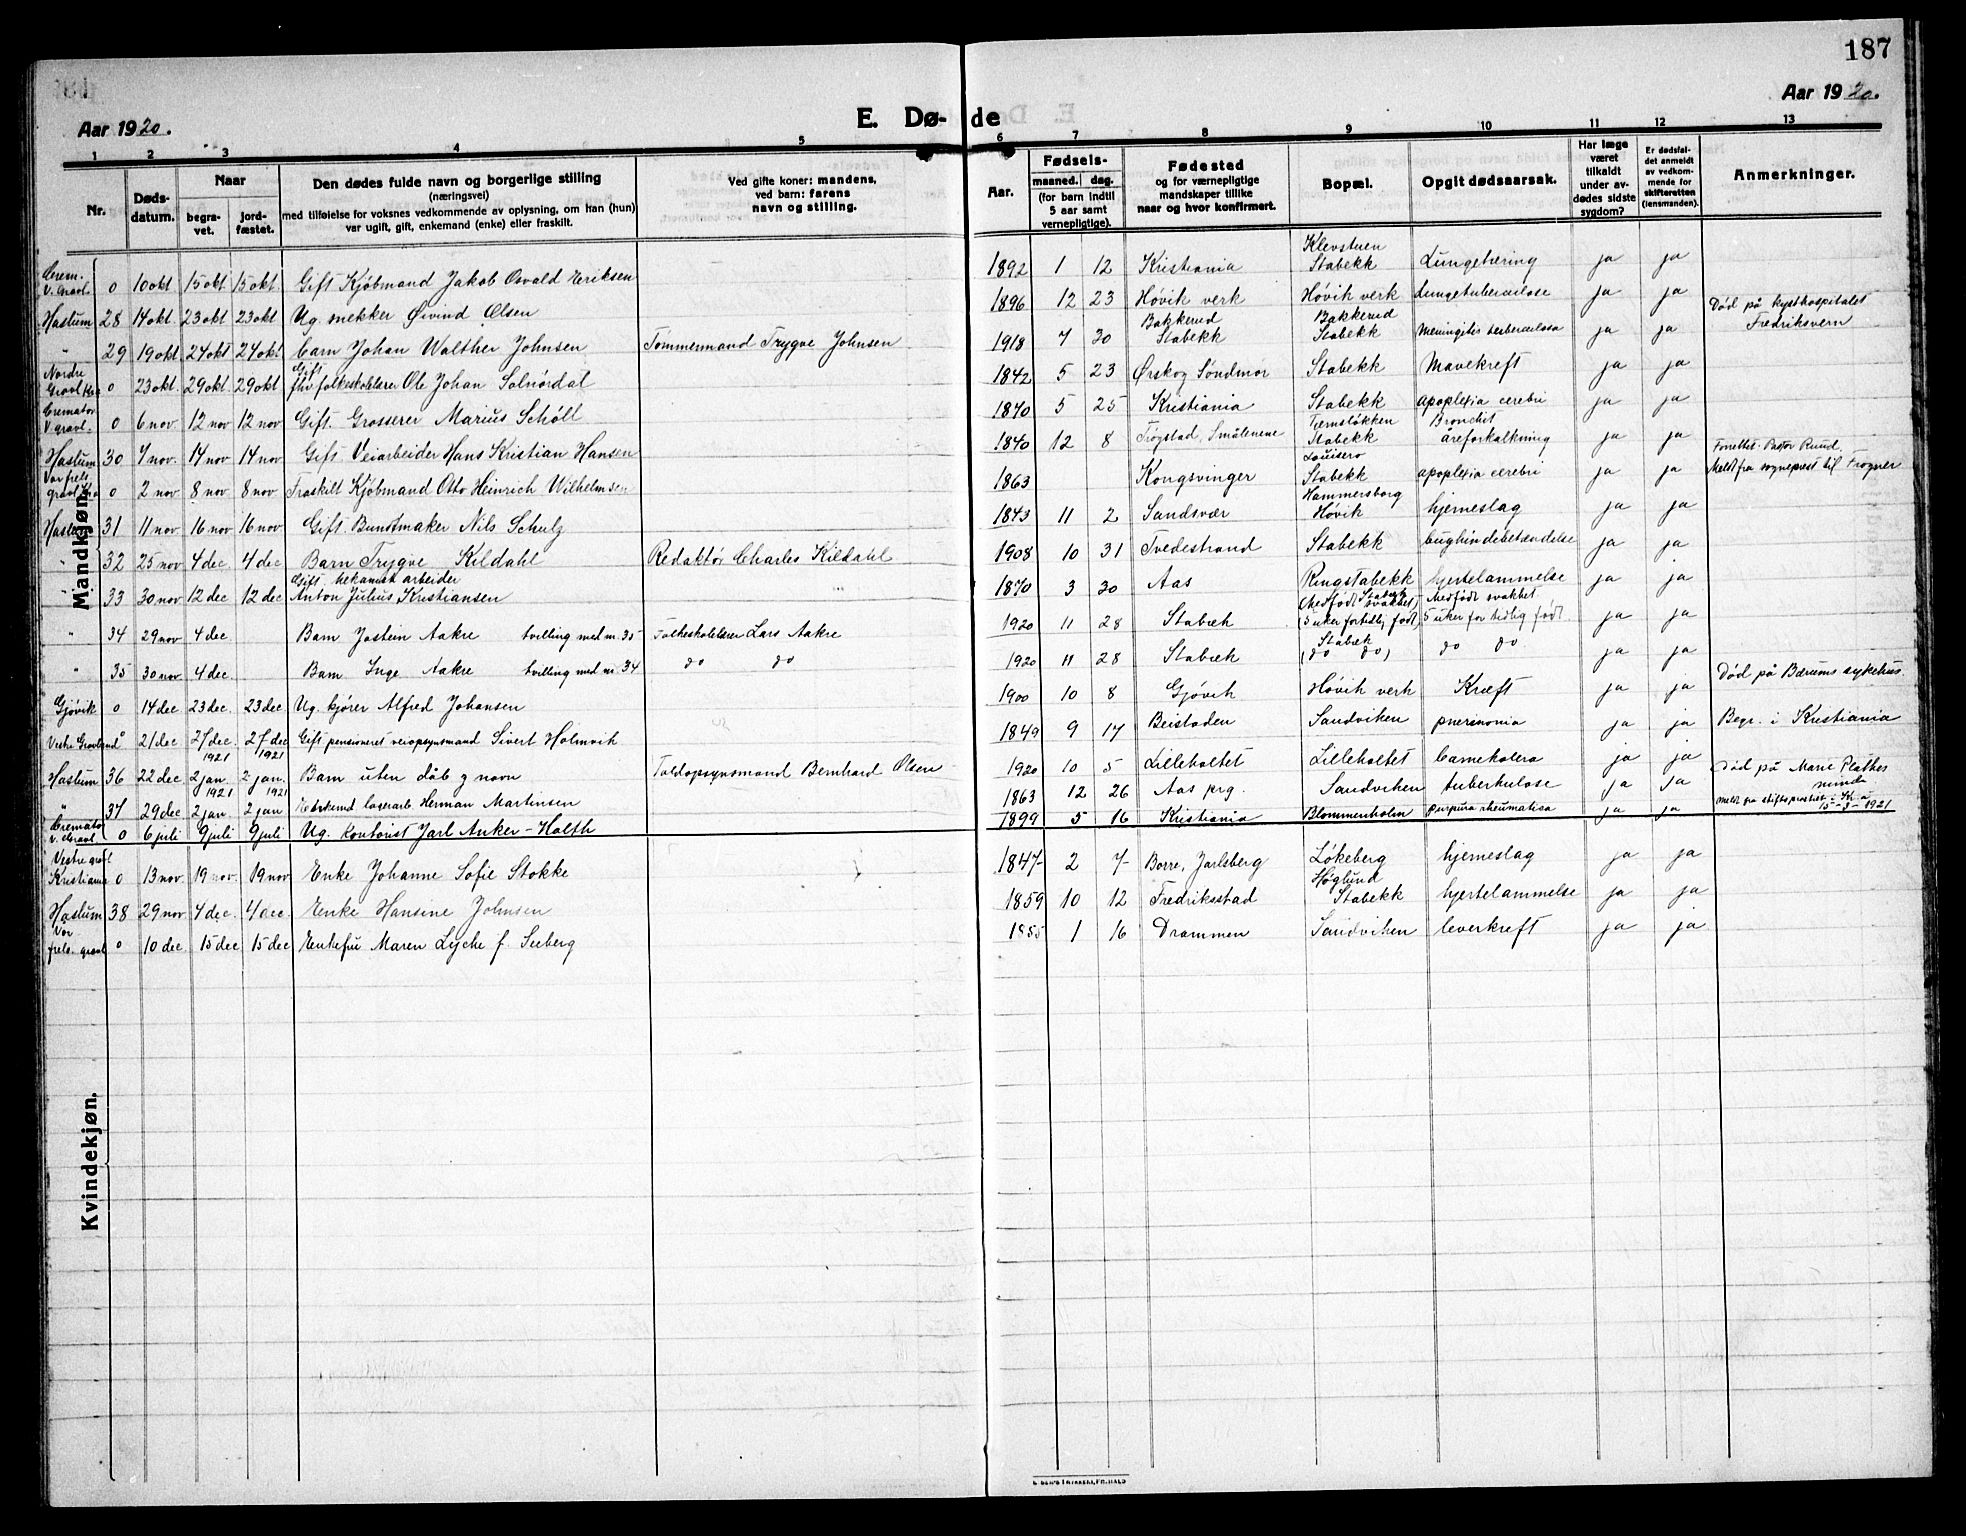 187
Aar 1920.
E. Dø-de
Aar 1920.
1 2 3 4 5 6 7 8 9 10 11 12 13
Nr.
Døds-datum.
Naar
begra-vet.
jord-fæstet.
Den dødes fulde navn og borgerlige stilling
(næringsvei)
med tilføielse for voksnes vedkommende av oplysning, om han (hun)
var ugift, gift, enkemand (enke) eller fraskilt.
Ved gifte koner: mandens,
ved barn: farens
navn og stilling.
Aar.
Fødsels-
maaned. dag.
(for barn indtil
5 aar samt
vernepligtige).
Fødested
og for værnepligtige
mandskaper tillike
naar og hvor konfirmert.
Bopæl.
Opgit dødsaarsak.
Har læge
været
tilkaldt
under av-
dødes sidste
sygdom?
Er dødsfal-
det anmeldt
av vedkom-
mende for
skifteretten
(lensmanden).
Anmerkninger.
Mandkjøn.
Crem. V. Gravl. 0 10 okt 15 okt 15 okt Gift Kjöbmand Jakob Osvald Eriksen 1892 1 12 Kristiania Klevstuen Stabekk Lungetæring ja ja
Haslum 28 14 okt 23 okt 23 okt Ug. snekker Øivind Olsen 1896 12 23 Høvik verk Høvik verk Lungetuberculose ja ja Död på kysthospitalet Fredriksvern
" 29 19 okt 24 okt 24 okt Barn Johan Walther Johnsen Tømmermand Trygve Johnsen 1918 7 30 Bakkerud Stabekk Bakkerud Stabekk Meningitis tuberculosa ja ja
Nordre Gravl Kra 0 23 okt. 29 okt 29 okt Gift fhv folkeskolelærer Ole Johan Solnördal 1842 5 23 Ørskog Söndmör Stabekk Mavekreft ja ja
Cremator V gravl. 0 6 nov. 12 nov 12 nov Gift. Grosserer Marius Schöll 1870 5 25 Kristiania Stabekk apoplexia cerebri ja ja
Haslum 30 7 nov. 14 nov 14 nov Gift Veiarbeider Hans Kristian Hansen 1840 12 8 Trögstad, Smålenene Stabekk Bronchit åreforkalkning ja ja
Vor frels. gravl Kra 0 2 nov 8 nov 8 nov Fraskilt Kjöbmand Otto Heinrich Wilhelmsen 1863 Kongsvinger Stabekk apoplexia cerebri ja ja Meldt fra sogneprest til Frogner
Haslum 31 11 nov 16 nov 16 nov Gift Buntmaker Nils Schulz 1843 11 2 Sandsvær Hammersborg Høvik hjerneslag ja ja
" 32 25 nov 4 dec. 4 dec Barn Trygve Kildahl Redaktør Charles Kildahl 1908 10 31 Tvedestrand Stabekk bughindebetændelse ja ja
" 33 30 nov 12 dec 12 dec Gift mekanist arbeider Anton Julius Kristiansen 1870 3 30 Aas Ringstabekk Stabekk hjertelammelse ja ja
" 34 29 nov 4 dec. Barn Jostein Aakre tvilling med nr. 35 Folkeskolelærer Lars Aakre 1920 11 28 Stabæk (Medfödt svakhet, 5 uker fortidlig födt) Stabæk Medfödt svakhet 5 uker for tidlig födt. ja ja
" 35 30 nov 4 dec Barn Inge Aakre tvilling med nr 34 do do 1920 11 28 Stabæk (do do) do do ja ja
Gjövik 0 14 dec 23 dec. 23 dec Ug. kjörer Alfred Johansen 1900 10 8 Gjövik Høvik verk Kræft ja ja Död på Bærums sykehus.
Vestre Gravlund 0 21 dec 27 dec. 27 dec Gift pensioneret veiopsynsmand Sivert Holmvik 1849 9 17 Beistaden Sandviken pneumonia ja ja Begr. i Kristiania
Haslum 36 22 dec 2 jan. 1921 2 jan. 1921 Barn uten dåb og navn Toldopsynsmand Bernhard Olsen 1920 10 5 Lilleholtet Lilleholtet Barnekolera ja ja
" 37 29 dec 2 jan 1921 2 jan 1921 Enkemd lagerarb. Herman Martinsen 1863 12 26 Aas prg. Sandviken tuberkulose ja ja Död på Marie Plathes minde
Cremato. v. Gravl. 0 6 juli 9 juli 9 juli Ug. kontorist Jarl Anker-Holth 1899 5 16 Kristiania Blommenholm Purpura rheumatica ja ja Meldt fra stiftsprostiet i Kr.a 15-3-1921
Kvindekjøn.
Vestre gravl Kristiania 0 13 nov. 19 nov. 19 nov Enke Johanne Sofie Stokke 1847 2 7 Borre, Jarlsberg Lökeberg hjerneslag ja ja
Haslum 38 29 nov. 4 dec. 4 dec. Enke Hansine Johnsen 1859 10 12 Fredriksstad Høglund Stabekk hjertelammelse ja ja
Vor frels. gravl 0 10 dec. 15 dec 15 dec Enkefru Maren Lyche f. Seeberg 1855 1 16 Drammen Sandviken leverkreft ja ja